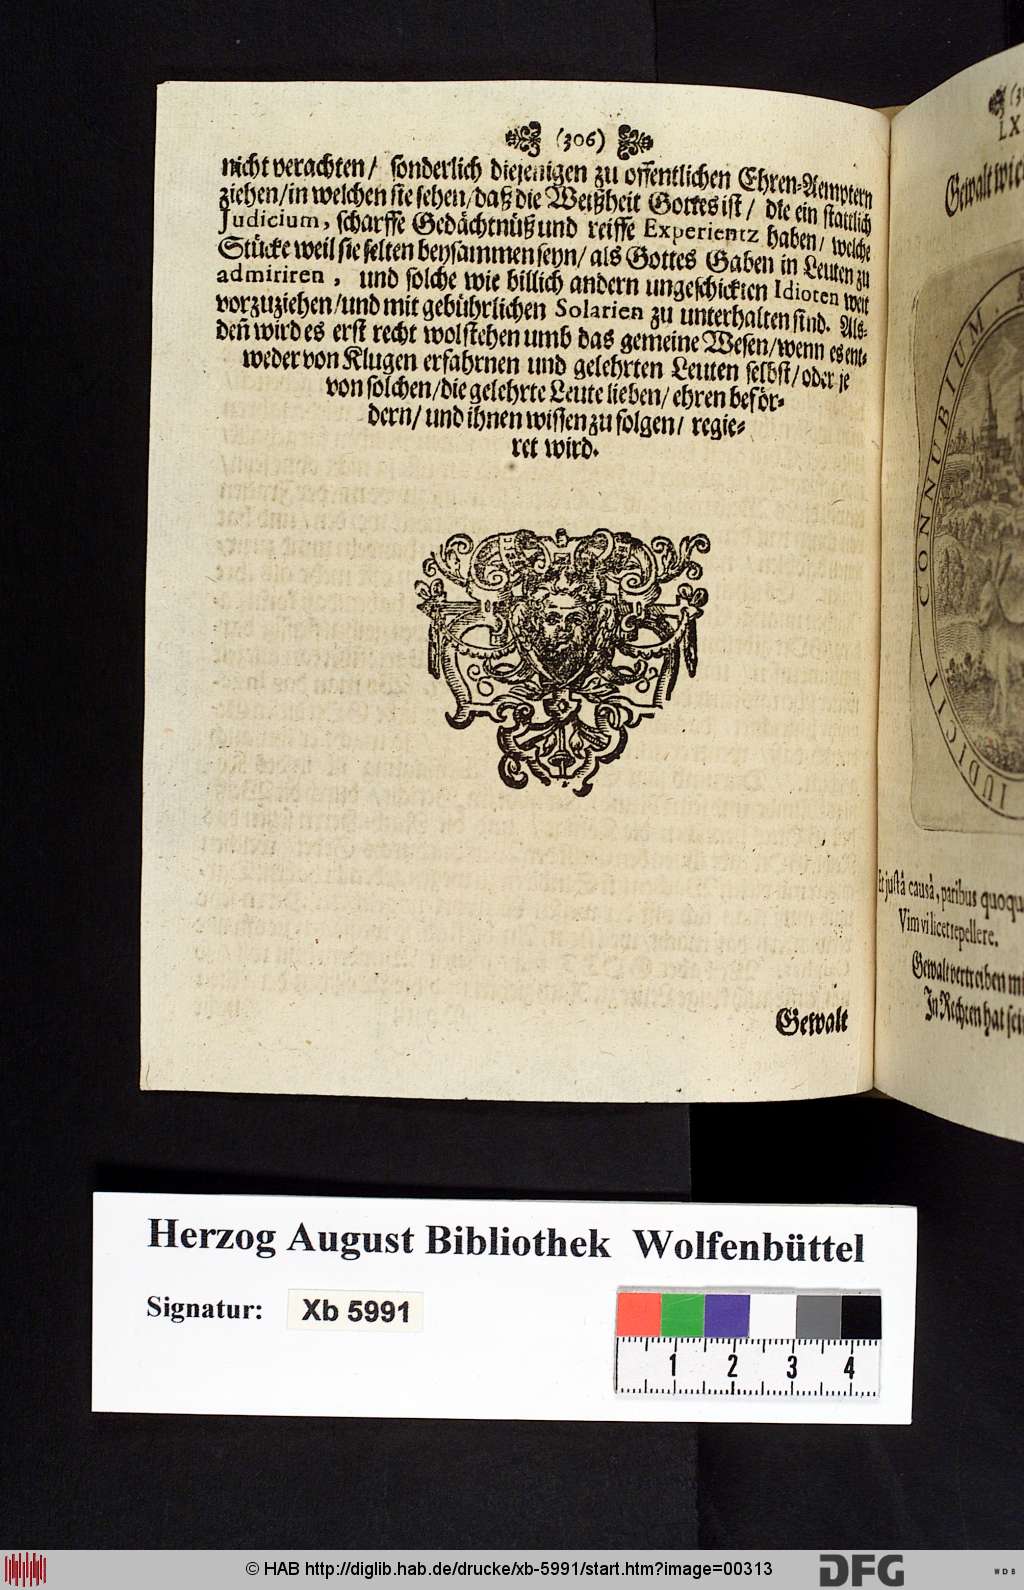 (306)
nicht verachten/ sonderlich diejenigen zu offentlichen Ehren-Aemptern
ziehen/in welchen sie sehen/daß die Weißheit Gottes ist/ die ein stattlich
Judicium, scharffe Gedächtnüß und reiffe Experientz haben/ welche
Stücke weil sie selten beysammen seyn/ als Gottes Gaben in Leuten zu
admiriren, und solche wie billich andern ungeschickten Idioten weit
vorzuziehen/und mit gebührlichen Solarien zu unterhalten sind. Als-
deñ wird es erst recht wolstehen umb das gemeine Wesen/wenn es ent-
weder von Klugen erfahrnen und gelehrten Leuten selbst/oder je
von solchen/die gelehrte Leute lieben/ ehren beför-
dern/ und ihnen wissen zu folgen/ regie-
ret wird.
Gewalt
LX
Gewalt
JUDICII CONNUBIUM.
Et justâ causâ, paribus quoqu
Vim vi licet repellere.
Gewalt vertreiben
In Rechten hat
Herzog August Bibliothek Wolfenbüttel
Signatur: Xb 5991
1 2 3 4
© HAB http://diglib.hab.de/drucke/xb-5991/start.htm?image=00313
DFG
WDB